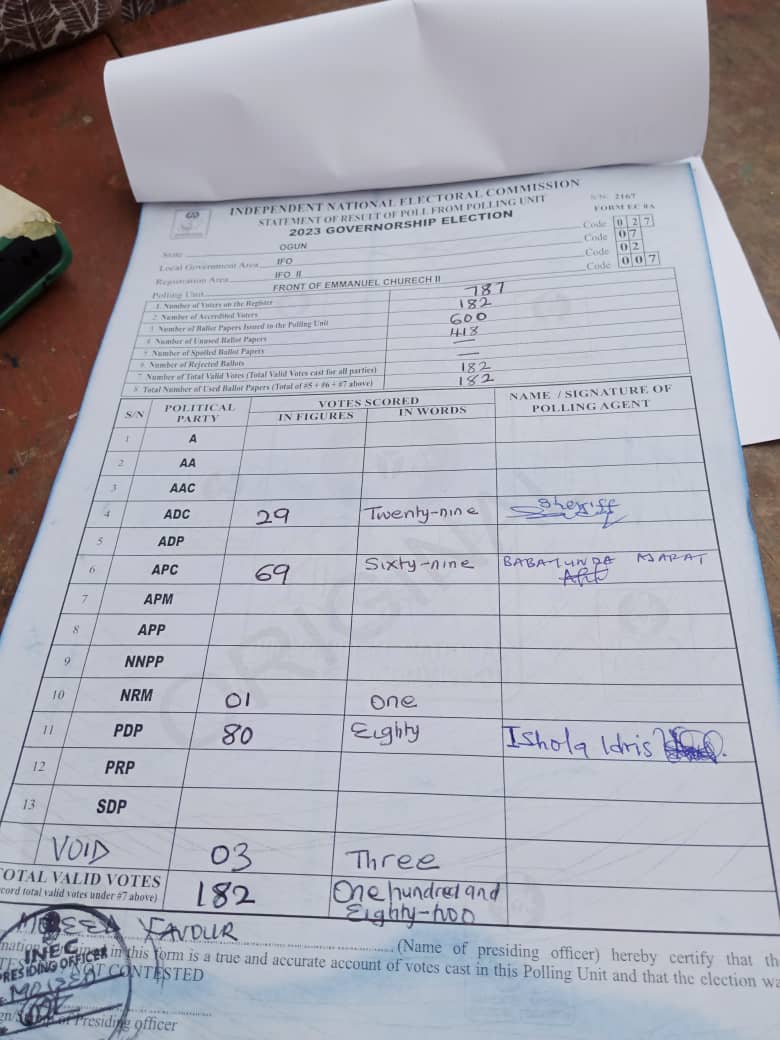 INDEPENDENT NATIONAL ELECTORAL COMMISSION
S/N: 2167
STATEMENT OF RESULT OF POLL FROM POLLING UNIT
FORM EC 8A
2023 GOVERNORSHIP ELECTION
State OGUN Code 0 2 7
Local Government Area IFO Code 0 7
Registration Area IFO II Code 0 2
Polling Unit FRONT OF EMMANUEL CHURECH II Code 0 0 7
1 Number of Voters on the Register 787
2 Number of Accredited Voters 182
3 Number of Ballot Papers Issued to the Polling Unit 600
4 Number of Unused Ballot Papers 418
5 Number of Spoiled Ballot Papers —
6 Number of Rejected Ballots —
7 Number of Total Valid Votes (Total Valid Votes cast for all parties) 182
8 Total Number of Used Ballot Papers (Total of #5 + #6 + #7 above) 182
S/N POLITICAL PARTY VOTES SCORED NAME / SIGNATURE OF POLLING AGENT
IN FIGURES IN WORDS
1 A
2 AA
3 AAC
4 ADC 29 Twenty-nine Sheriff
5 ADP
6 APC 69 Sixty-nine BABATUNDE
7 APM
8 APP
9 NNPP
10 NRM 01 one
11 PDP 80 Eighty Ishola Idris
12 PRP
13 SDP
VOID 03 Three
TOTAL VALID VOTES 182 One hundred and
cord total valid votes under #7 above) Eighty-two
FAVOUR
(Name of presiding officer) hereby certify that th
in this form is a true and accurate account of votes cast in this Polling Unit and that the election wa
NOT CONTESTED
INEC
PRESIDING OFFICER
of Presiding officer
ORIGINAL